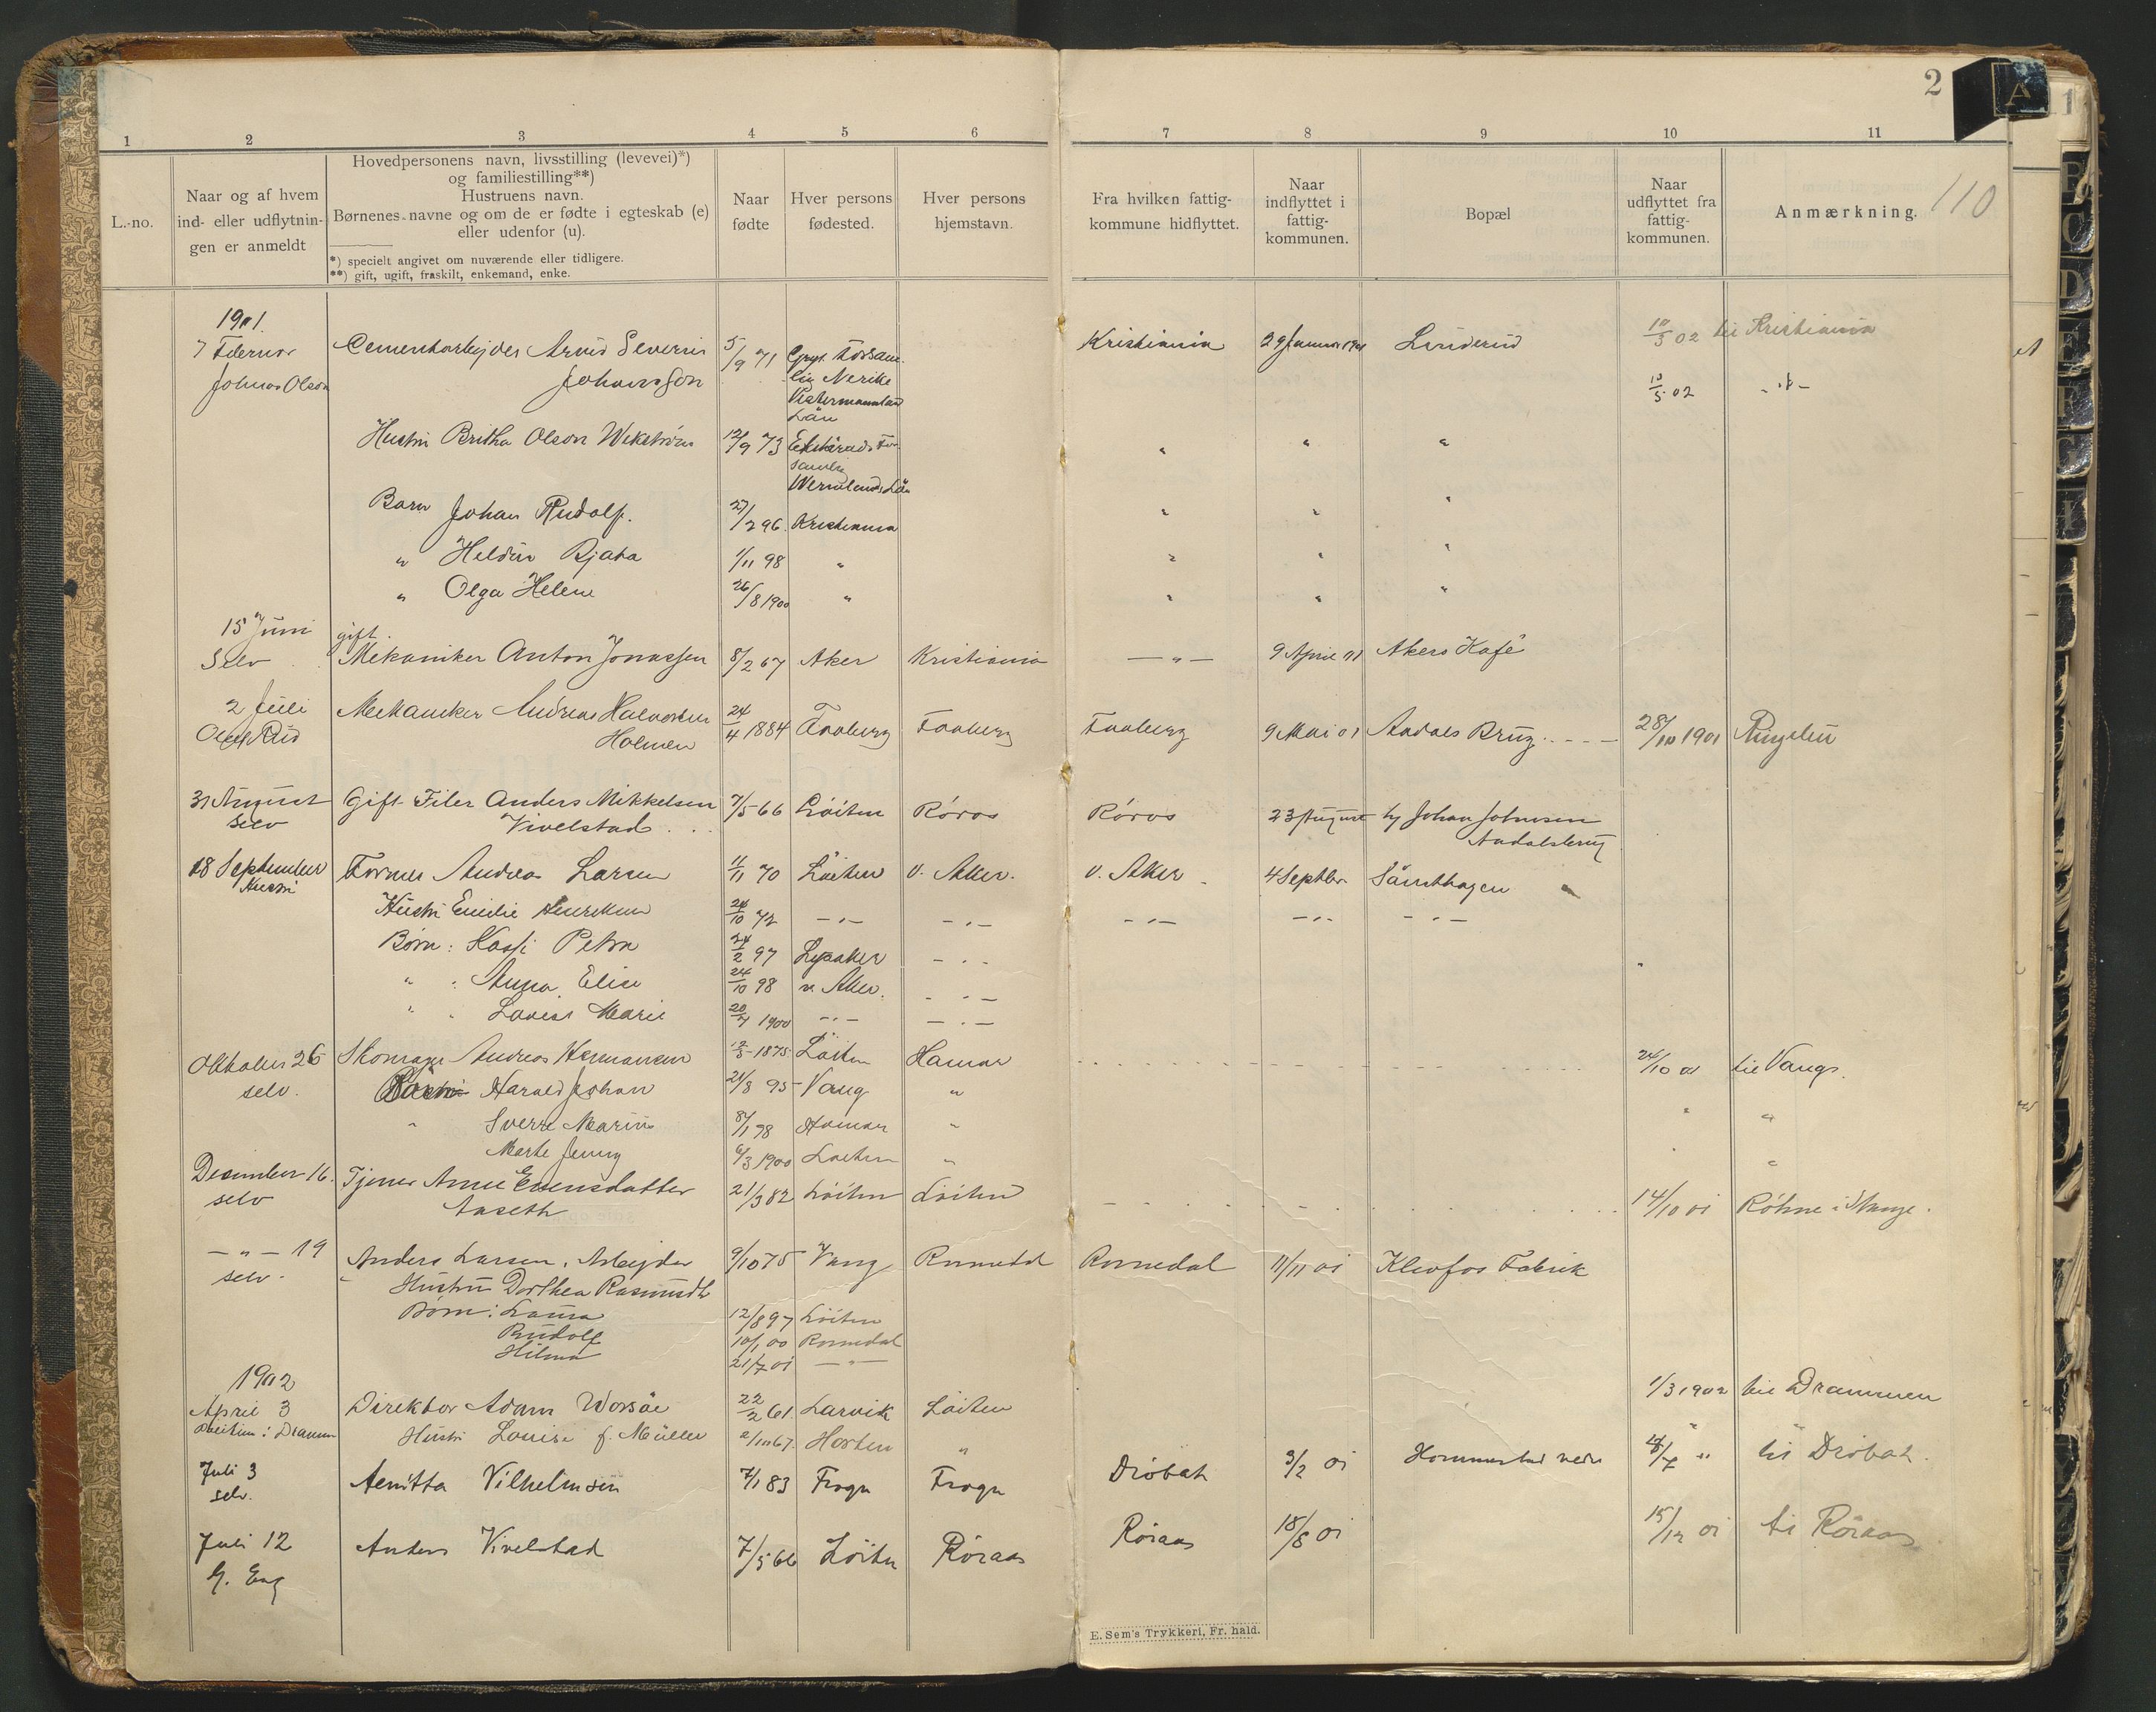 2
A
1
1 2 3 4 5 6 7 8 9 10 11
L.-no.
Naar og af hvem
ind- eller udflytnin-
gen er anmeldt
Hovedpersonens navn, livsstilling (levevei)*)
og familiestilling**)
Hustruens navn.
Børnenes navne og om de er fødte i egteskab (e)
eller udenfor (u).
*) specielt angivet om nuværende eller tidligere.
**) gift, ugift, fraskilt, enkemand, enke.
Naar
fødte
Hver persons
fødested.
Hver persons
hjemstavn.
Fra hvilken fattig-
kommune hidflyttet.
Naar
indflyttet i
fattig-
kommunen.
Bopæl
Naar
udflyttet fra
fattig-
kommunen.
Anmærkning.
110
1901.
7 Februar Cementarbejder Arvid Severin 5/9 71 Kristiania 29 Januar 1901 Linderud 10/5 02 til Kristiania
Johnas Olson Johansson Nerike 10/5 02 - " -
Vestermannland
Län
Hustru Britha Olson Wikström 12/9 73 " " "
Wermlands Län
Barn Johan Rudolf. 27/2 96. Kristiania " " "
" Heldur Bjata 1/11 98 " " " "
" Olga Helene 26/8 1900 " " " "
15 Juni gift.
Selv Mekaniker Anton Jonassen 8/2 67 Aker Kristiania — " — 9 April 01 Akers Kafé
2 Juli Mekaniker Andreas Halvorsen 24/4 1884 Faaberg Faaberg Faaberg 9 Mai 01 Aadals Brug 28/10 1901 Ringebu
Olaf Rud Holmen
31 August Gift Filer Anders Mikkelsen 7/5 66 Löiten Røros Røros 23 August h/ Johan Johnsen
selv Vivelstad Aadalsbrug
18 September Former Andreas Larsen 11/11 70 Löiten v. Aker. v. Aker 4 Septbr
Hustru
Hustru Emilie Henriksen 24/10 72 — " — — " — — " — — " — — " —
Børn: Kassi Petra 24/2 97 Lysaker — " —
" " Anna Elise 24/10 98 v. Aker. — " —
" " Lovise Marie 20/4 1900 — " — — " —
Oktober 26 Skomager Andreas Hermansen 12/5 1875 Löiten Hamar 24/10 01 til Vangs.
selv. Harald Johan 21/8 95 Vang " " "
" Sverre Marius 8/1 98 Hamar " " "
Marte Jenny 6/3 1900 Loiten "
Desember 16. Tjener Anne Evensdatter 21/3 82 Löiten Löiten 14/10 01 Röhne i Stange.
selv Aaseth
— " — 19 Anders Larsen, Arbeyder 9/10 75 Vang Romedal Romedal 11/11 01 Klevfos Fabrik
selv. Hustru Dorthea Rasmusdt
Børn: Laura 12/8 97 Löiten
Rudolf 10/1 00 Romedal
Hilma 21/7 01 — " —
1902
April 3 Direktør Adam Worsöe 22/2 61. Larvik Löiten 1/3 1902 til Drammen
Hustru Louise f. Müller 2/10 67. Horten " " "
Juli 3 Aenitta Vilhelmsen 7/1 83 Frogn Frogn Dröbak 3/2 01 til Dröbak.
selv.
Juli 12 Anders Vivelstad 7/5 66 Löiten Röraas Röraas 18/8 01 15/12 01 til Röraas
G. Eng
E. Sem's Trykkeri, Fr. hald.